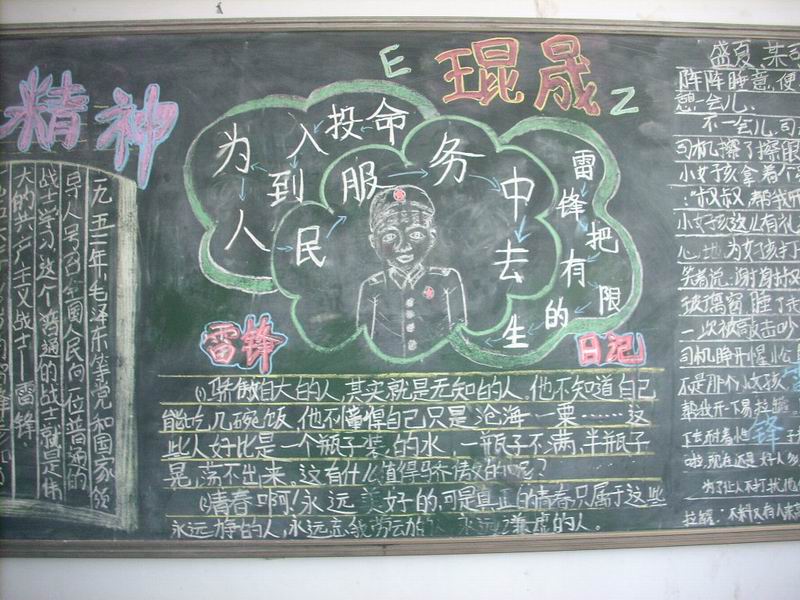 精神
E 琨晟 Z
一九五二年,毛泽东等党和国家领
导人号召全国人民向一位普通的
战士学习这个普通的战士就是伟
大的共产主义战士——雷锋
雷锋把有限的生命投入到为人民服务中去
雷锋
日记
(1)骄傲自大的人,其实就是无知的人。他不知道自己
能吃几碗饭,他不懂得自己只是沧海一粟……这
些人好比是一个瓶子装的水,一瓶子不满,半瓶子
晃荡不出来。这有什么值得骄傲的呢?
青春啊!永远美好的,可是真正的青春只属于这些
永远力争的人,永远忘 劳动的 永远谦虚的人。
盛夏,某司
阵阵睡意,便
想一会儿、
不一会儿,司
司机擦了擦眼
小女孩拿着
:"叔叔,帮我开
小女孩这儿有礼
心地为女孩打开
笑着说:谢谢叔叔
玻璃窗睡了
一次被敲击吵
司机睁开惺忪
不是那个小女孩
帮我开一下易拉罐
锋
啦,现在还是好人多
为了让人不打扰
拉罐:不料又有人来